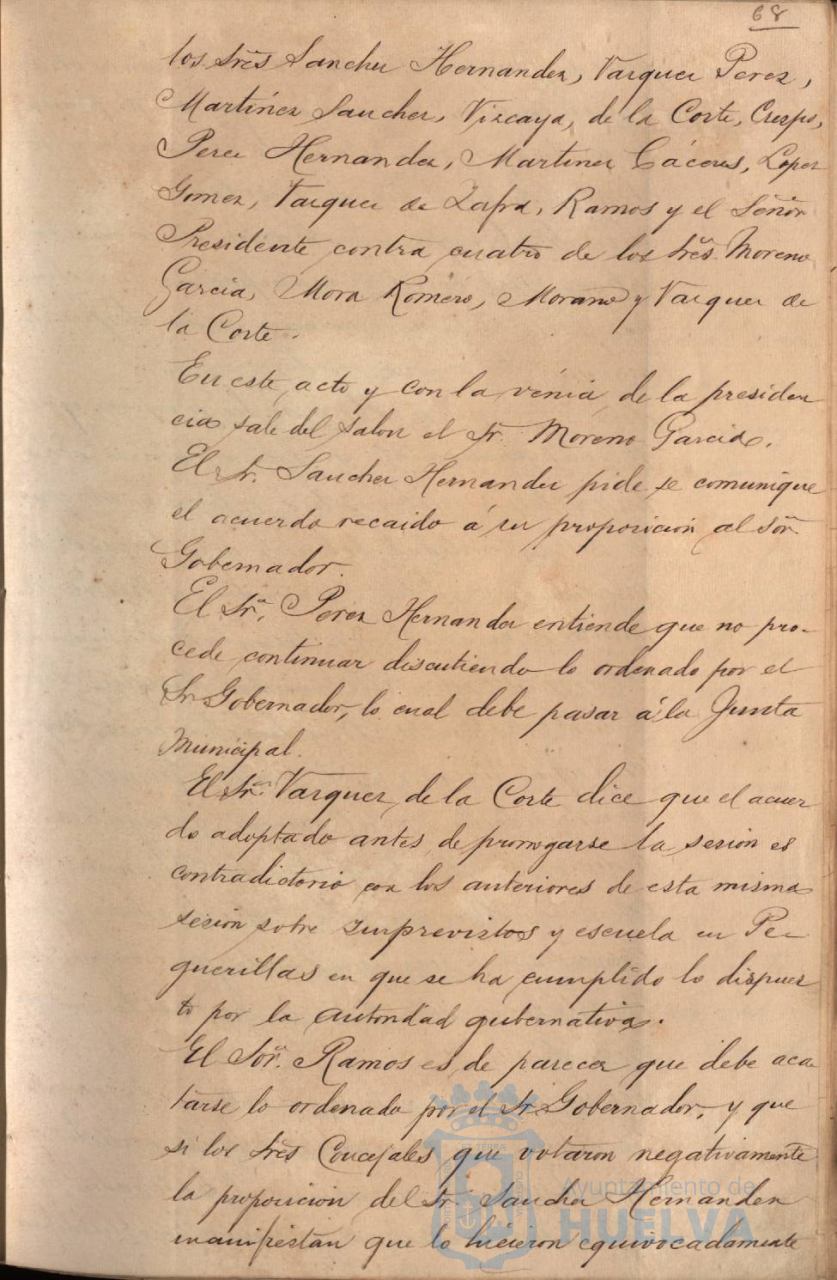 68
los Sres Sanchez Hernandez, Vazquez Perez,
Martinez Sanchez, Vizcaya, de la Corte, Crespo,
Perez Hernandez, Martinez Cáceres, Lopez
Gomez, Vazquez de Zafra, Ramos y el Señor
Presidente contra cuatro de los Sres. Moreno
Garcia, Mora Romero, Morano y Vazquez de
la Corte.
En este acto y con la vénia de la presiden
cia sale del salon el Sr. Moreno Garcia.
El Sr. Sanchez Hernandez pide se comunique
el acuerdo recaido á su proposicion al Sor.
Gobernador.
El Sr. Perez Hernandez entiende que no pro-
cede continuar discutiendo lo ordenado por el
Sr. Gobernador, lo cual debe pasar á la Junta
Municipal.
El Sr. Vazquez de la Corte dice que el acuer
do adoptado antes de prorrogarse la sesion es
contradictorio con los anteriores de esta misma
sesion sobre Imprevistos y escuela en Pe-
guerillas en que se ha cumplido lo dispues
to por la autoridad gubernativa.
El Sor. Ramos es de parecer que debe aca
tarse lo ordenado por el Sr. Gobernador, y que
si los Sres Concejales que votaron negativamente
la proposicion del Sr. Sanchez Hernandez
manifiestan que lo hicieron equivocadamente
Ayuntamiento de
HUELVA